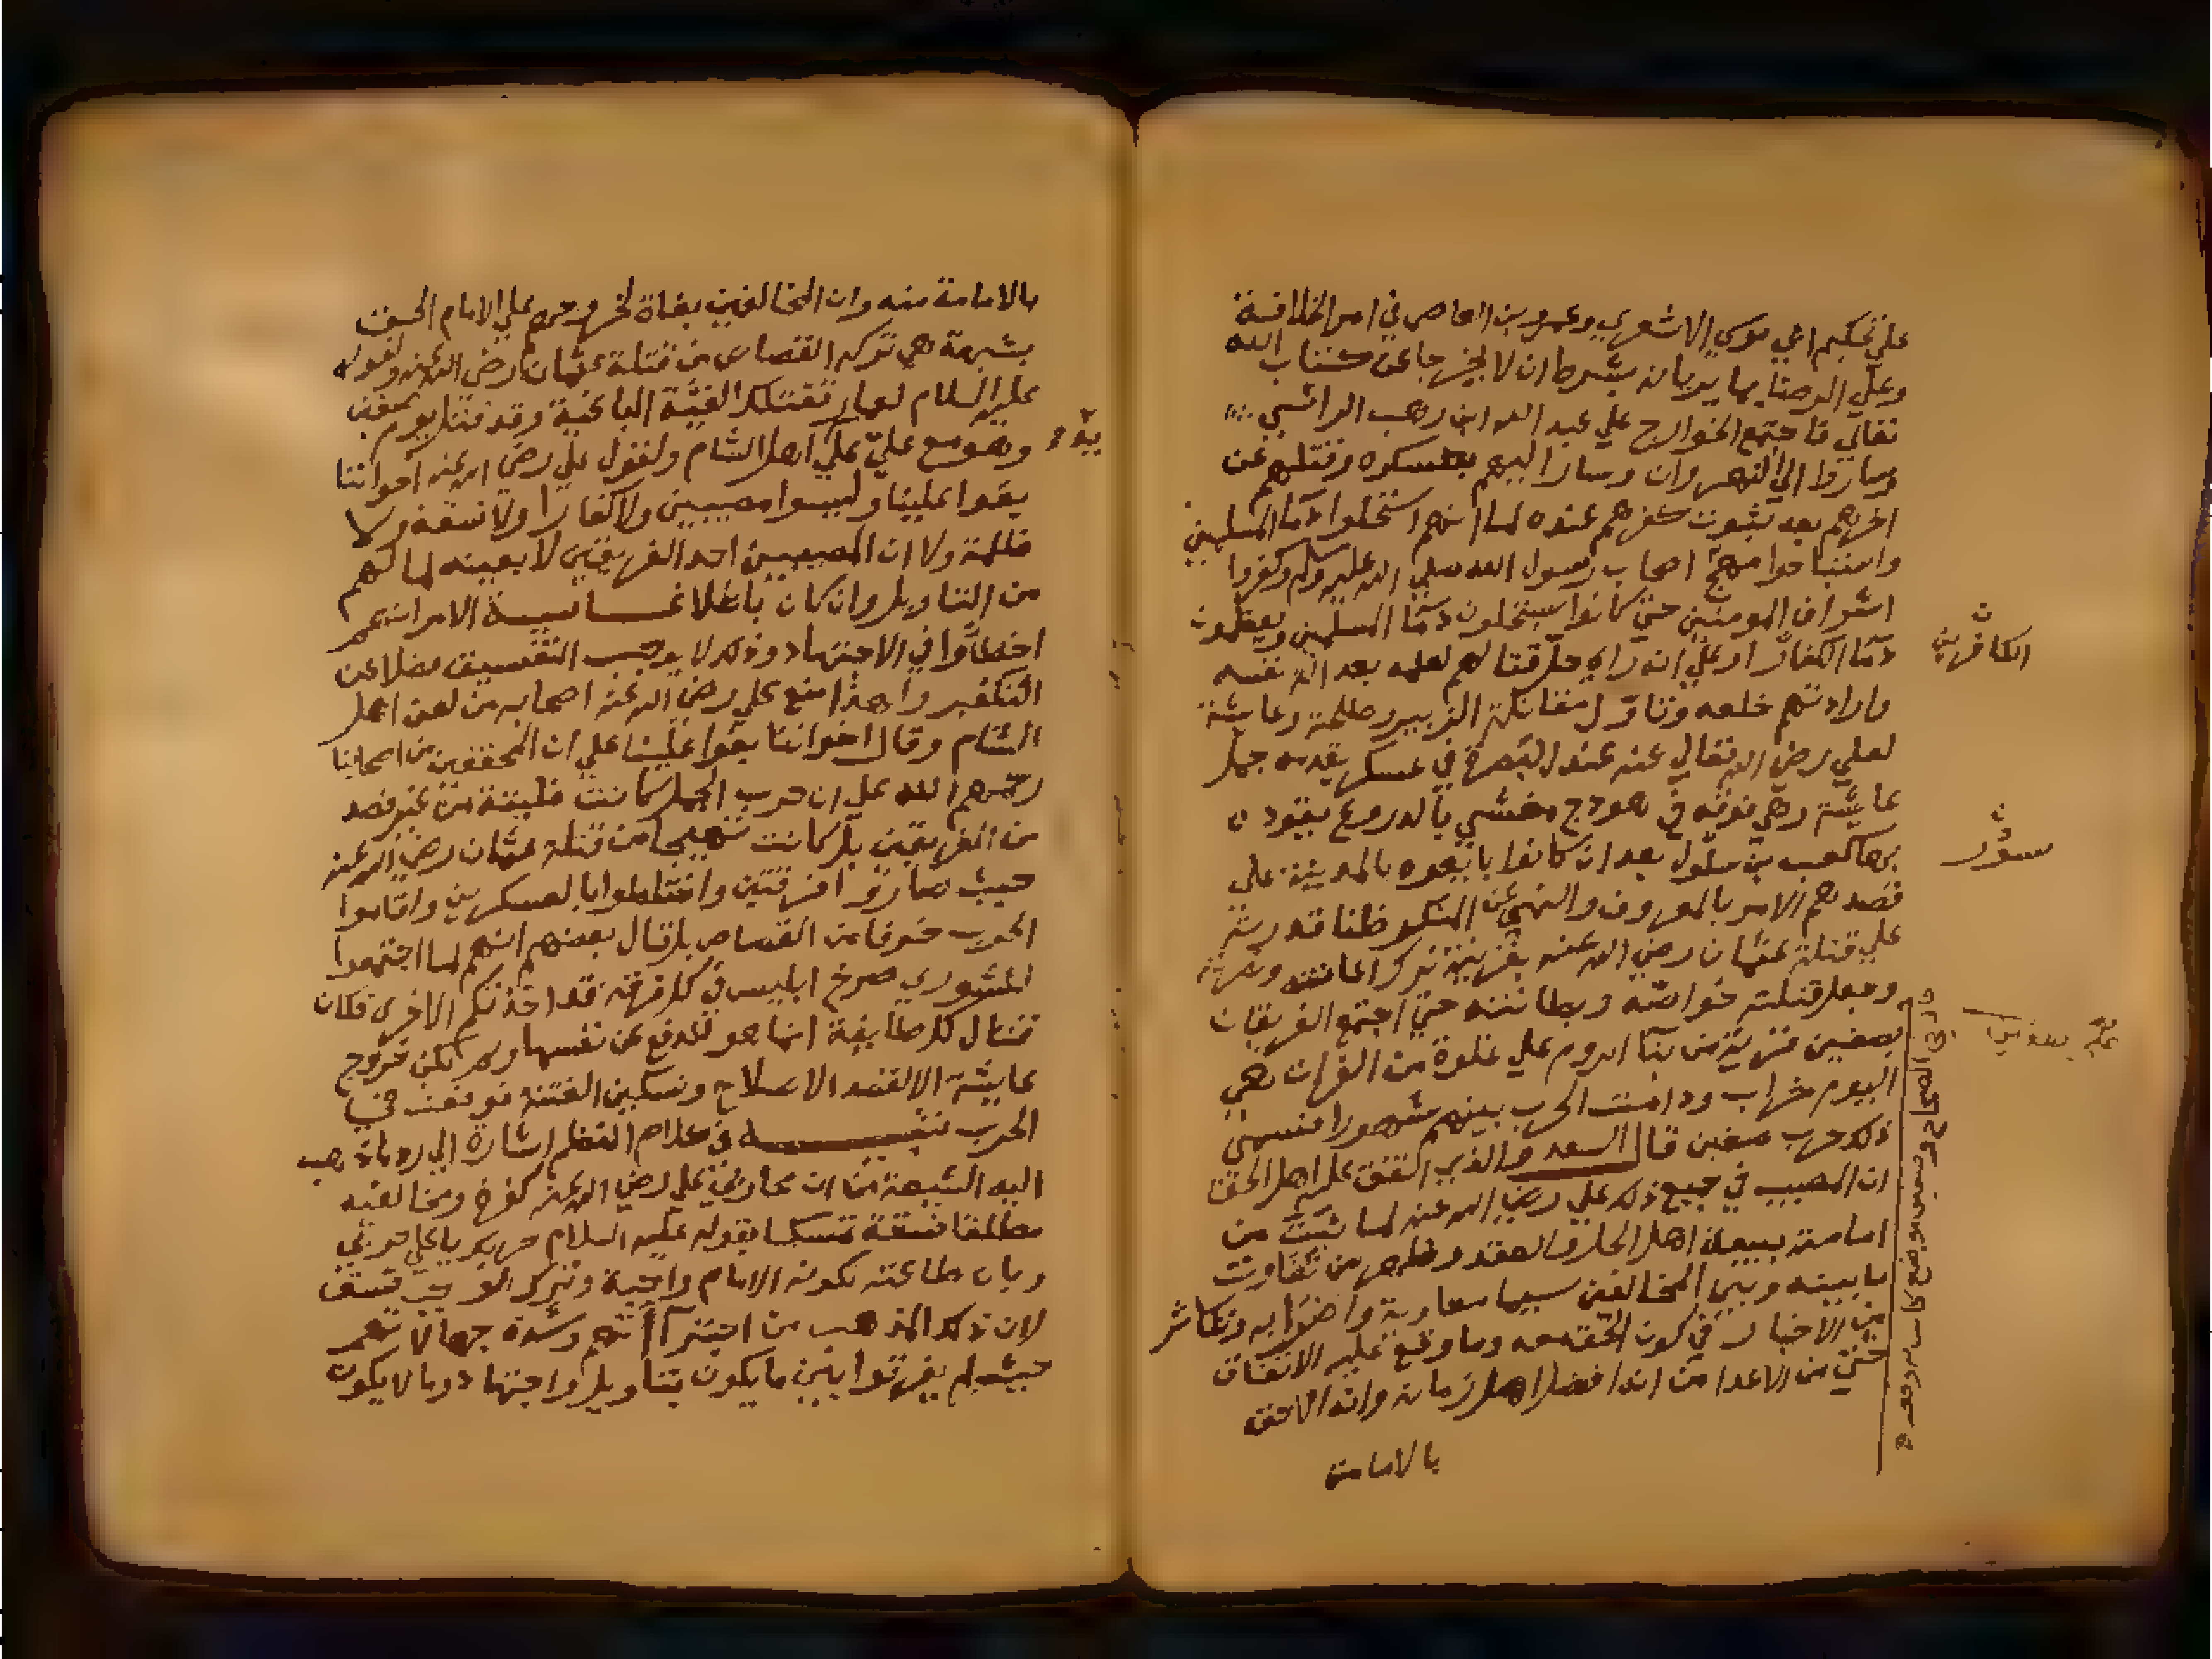 علي تحكيم ابي موسي الاشعري وعمرو بن العاص في امر الخلافة
وعلي الرضا بما يريانه بشرط ان لا يخرجا عن كتاب الله
تعالي فاجتمع الخوارج علي عبد الله ابن وهب الراسبي
وساروا الي النهروان وسار اليهم بعسكره وقتلهم عن
اخرهم بعد ثبوت كفرهم عنده لما انهم استحلوا دما المسلمين
واستباحوا اصحاب رسول الله صلي الله عليه وسلم وكفروا
اشراف المومنين حتي كانوا يستحلون دما المسلمين ويعظمون
دما الكفار او علي انه راي حل قتالهم لعلمه بعد اله نفسه
وارادتهم خلعه وتناول مقاتلة الزبير وطلحة وعايشة
لعلي رضي الله تعالي عنه عند البصرة في عسكر يقدمه جمل
عايشة وهي فوقه في هودج مغشي بالدروع يقوده
بها كعب بن سلول بعد ان كانوا بايعوه بالمدينة علي
قصدهم الامر بالمعروف والنهي عن المنكر ظنا قدرته
علي قتلة عثمان رضي الله عنه بقرينة تركه اعانته ونصرته
وجعل قتلته خواصه وبطانته حتي اجتمع الفريقان
بصفين قرية من بنا الروم علي غلوة من الفرات هي
اليوم خراب ودامت الحرب بينهم شهورا فسمي
ذلك حرب صفين قال السعد والذي اتفق عليه اهل الحق
ان المصيب في جميع ذلك علي رضي الله عنه لما ثبت من
امامته ببيعة اهل الحل والعقد وظهر من تفاوت
ما بينه وبين المخالفين سيما معاوية واحزابه وتكاثر
من الاخبار في كون الحق معه وما وقع عليه الاتفاق
حتي من الاعدا من انه افضل اهل زمانه وانه الاحق
بالامامة
الكافرين
سور
بالامامة منه وان المخالفين بغاة لخروجهم علي الامام الحق
بشبهة هي تركه القصاص من قتلة عثمان رضي الله عنه ولقوله
عليه السلام لعمار تقتلك الفئة الباغية وقد قتل يوم صفين
وهو مع علي علي اهل الشام ولقول علي رضي الله عنه اخواننا
بغوا علينا وليسوا مصيبين ولا كفارا ولا فسقة ولا
ظلمة ولا ان المصيبين احد الفريقين لا بعينه لما لهم
من التاويل وان كان باطلا غاية الامر انهم
اخطاوا في الاجتهاد وذلك لا يوجب التفسيق فضلا عن
التكفير ولهذا منع علي رضي الله عنه اصحابه من لعن اهل
الشام وقال اخواننا بغوا علينا علي ان المحققين من اصحابنا
رحمهم الله علي ان حرب الجمل كانت فليتة من غير قصد
من الفريقين بل كانت تهييجا من قتلة عثمان رضي الله عنه
حيث صاروا فرقتين واختلطوا بالعسكرين واقاموا
الحرب خوفا من القصاص بل قال بعضهم انهم لما اجتمعوا
للشوري صرخ ابليس في كل فرقة قد اخذتكم الاخري فكان
قتال كل طايفة انما هو للدفع عن نفسها ولم يكن خروج
عايشة الا لقصد الاصلاح وتسكين الفتنة فوقعت في
الحرب تنبيه في كلام النظم اشارة الي رد ما ذهب
اليه الشيعة من ان محاربي علي رضي الله عنه كفرة ومخالفيه
مطلقا فسقة تمسكا بقوله عليه السلام حربك يا علي حربي
وبان طاعته لكونه الامام واجبة وترك الواجب فسق
لان ذلك المذهب من اجترآأتهم وشدة جهالاتهم
حيث لم يفرقوا بين ما يكون بتاويل واجتهاد وما لا يكون